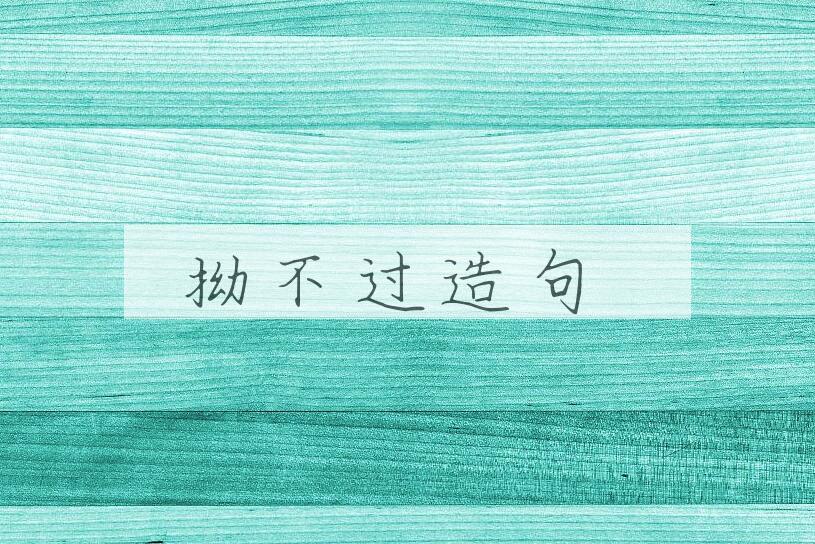 拗不过造句